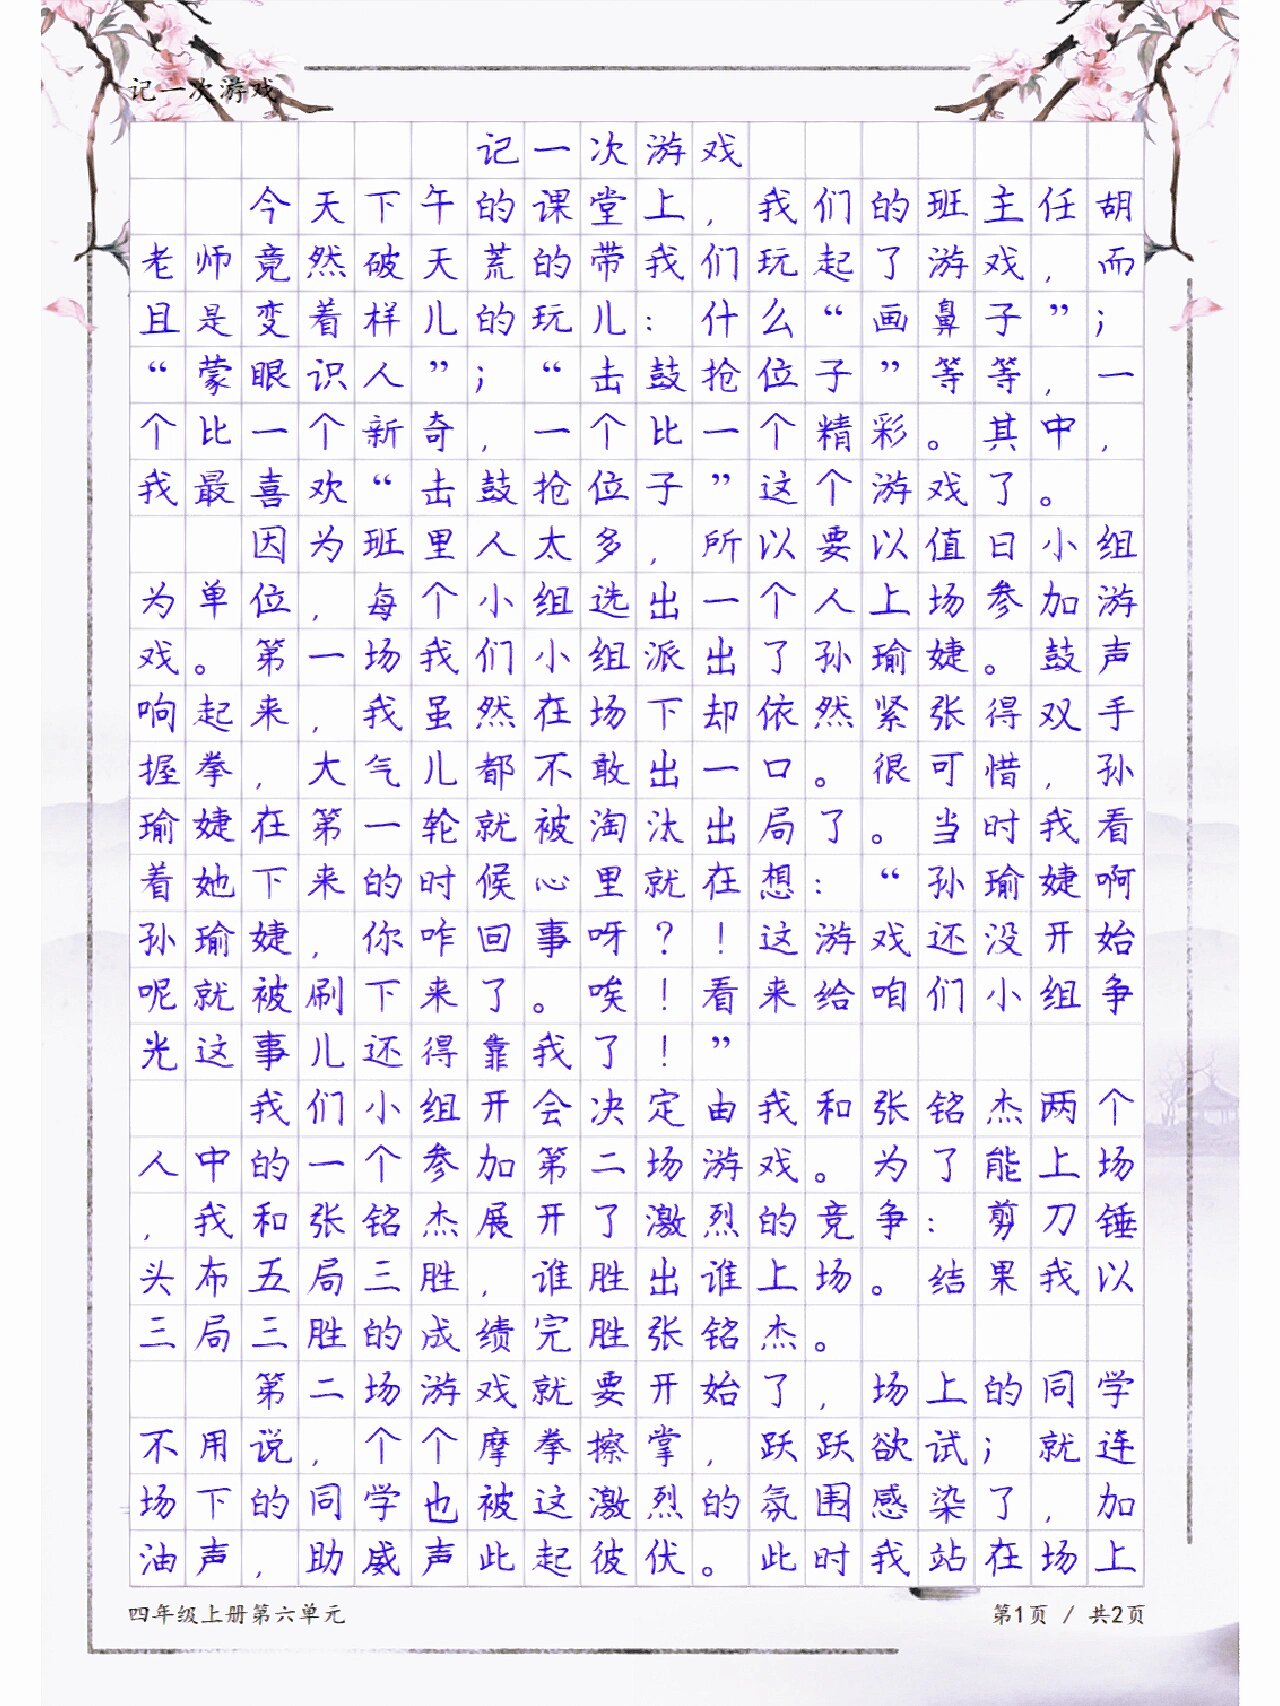 记一次游戏
记一次游戏
今天下午的课堂上，我们的班主任胡
老师竟然破天荒的带我们玩起了游戏，而
且是变着样儿的玩儿：什么“画鼻子”；
“蒙眼识人”；“击鼓抢位子”等等，一
个比一个新奇，一个比一个精彩。其中，
我最喜欢“击鼓抢位子”这个游戏了。
因为班里人太多，所以要以值日小组
为单位，每个小组选出一个人上场参加游
戏。第一场我们小组派出了孙瑜婕。鼓声
响起来，我虽然在场下却依然紧张得双手
握拳，大气儿都不敢出一口。很可惜，孙
瑜婕在第一轮就被淘汰出局了。当时我看
着她下来的时候心里就在想：“孙瑜婕啊
孙瑜婕，你咋回事呀？！这游戏还没开始
呢就被刷下来了。唉！看来给咱们小组争
光这事儿还得靠我了！”
我们小组开会决定由我和张铭杰两个
人中的一个参加第二场游戏。为了能上场
，我和张铭杰展开了激烈的竞争：剪刀锤
头布五局三胜，谁胜出谁上场。结果我以
三局三胜的成绩完胜张铭杰。
第二场游戏就要开始了，场上的同学
不用说，个个摩拳擦掌，跃跃欲试；就连
场下的同学也被这激烈的氛围感染了，加
油声，助威声此起彼伏。此时我站在场上
四年级上册第六单元
第1页 / 共2页